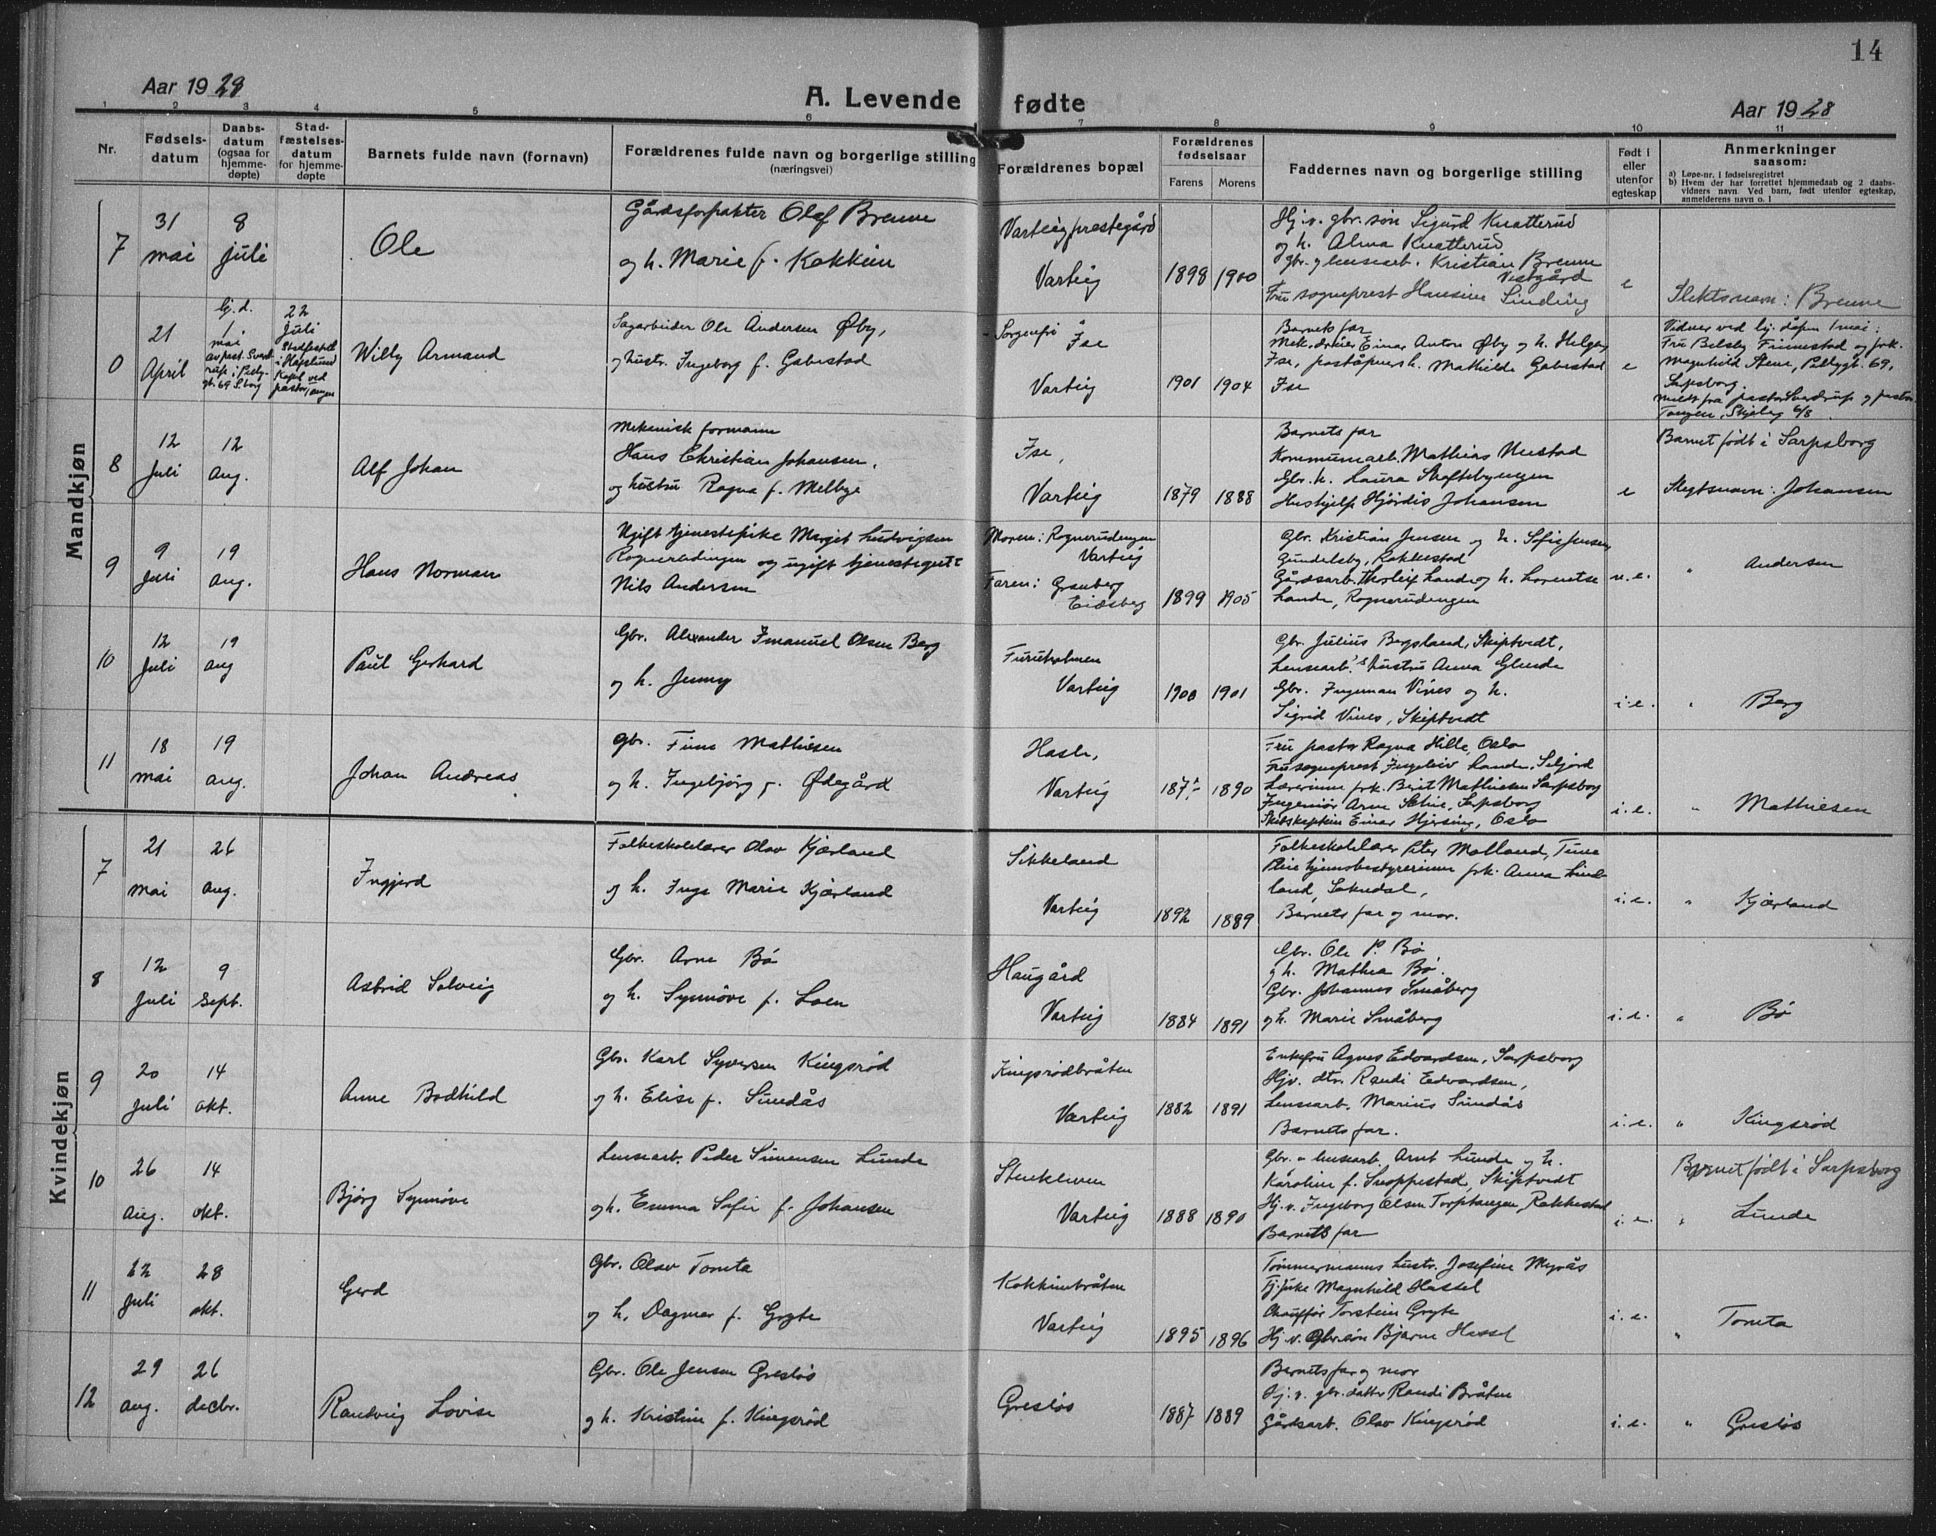 14
Aar 1928
A. Levende fødte
Aar 1928
1 2 3 4 5 6 7 8 9 10 11
Nr.
Fødsels-
datum
Daabs-
datum
(ogsaa for
hjemme-
døpte)
Stad-
fæstelses-
datum
for hjemme-
døpte
Barnets fulde navn (fornavn)
Forældrenes fulde navn og borgerlige stilling
(næringsvei)
Forældrenes bopæl
Forældrenes
fødselsaar
Farens Morens
Faddernes navn og borgerlige stilling
Født i
eller
utenfor
egteskap
Anmerkninger
saasom:
a) Løpe-nr. i fødselsregistret
b) Hvem der har forrettet hjemmedaab og 2 daabs-
vidners navn. Ved barn, født utenfor egteskap,
anmelderens navn o. l
Mandkjøn
7
31
mai
8
juli
Ole
Gårdsforpakter Olaf Brenne
og h. Marie f. Kokkim
Varteig prestegård
Varteig
1898 1900
Hj.v. gbr. søn Sigurd Knatterud
og h. Alma Knatterud
Gbr. og lensearb. Kristian Brenne
Vestgård
Fru sogneprest Hansine Sinding
e
Slektsnavn: Brenne
0
21
April
Hj.d.
1
mai
22
Juli
Stadfestet
i Hafslund
Kapel ved
pastor Tangen
Willy Armand
Sagarbeider Ole Andersen Øby,
og hustr. Ingeborg f. Gabestad
Sorgenfri
Ise
Varteig
1901 1904
Barnets far
Mek. dreier Einar Anton Øby og h. Helga,
Ise, poståpners h. Mathilde Gabestad
Ise
e
Vidner ved hj. dåpen 1 mai:
Fru Belsby Finnestad og frk.
Magnhild Stene, Pellygt. 69,
Sarpsborg.
Meldt fra pastor Sverdrup og pastor
Tangen, Skjeberg 6/8
8
12
Juli
12
Aug.
Alf Johan
Mekanisk formann
Hans Christian Johansen,
og hustru Ragna f. Melbye
Ise,
Varteig
1879 1888
Barnets far
Kommunearb. Mathias Nustad
Gbr. h. Laura Skofteby­engen
Hushjelp Hjördis Johansen
e
Barnet født i Sarpsborg
Slegtsnavn: Johansen
9
9
Juli
19
Aug.
Hans Norman
Ugift tjenestepike Margit Ludvigsen
Rognerudengen og ugift tjenestegutt
Nils Andersen
Moren: Rognerudengen
Varteig
Faren: Granberg
Eidsberg
1899 1905
Gbr. Kristian Jensen og h. Sofie Jensen,
Gundelsby, Rakkestad
Gårdsarb. Thorleif Lande og h. Lorentse
Lande, Rognerudengen
u.e.
" Andersen
10
12
Juli
19
Aug
Paul Gerhard
Gbr. Alexander Imanuel Olsen Berg
og h. Jenny
Furuholmen
Varteig
1900 1901
Gbr. Julius Bergsland, Skiptvedt,
Lensearb.'s hustru Anna Glende
Gbr. Ingeman Vines og h.
Sigrid Vines, Skiptvedt
i.e.
" Berg
11
18
mai
19
aug.
Johan Andreas
Gbr. Finn Mathiesen
og h. Ingebjörg f. Ødegård
Hasle,
Varteig
1890
Fru pastor Ragna Hille, Oslo
Fru sogneprest Ingeleiv Lande, Seljord
Lærerinne frk. Berit Mathiesen Sarpsborg
Ingeniør Arne Sætrie, Sarpsborg
Skibskaptein Einar Hjersing, Oslo
i.e.
" Mathiesen
Kvindekjøn
7
21
mai
26
aug.
Ingjerd
Folkeskolelærer Olav Kjærland
og h. Inga Marie Kjærland
Sikkeland
Varteig
1892 1889
Folkeskolelærer Peter Molland, Tune
Pleiehjemsbestyrerinne frk. Anna Lind-
land, Sokndal,
Barnets far og mor.
i.e.
" Kjærland
8
12
Juli
9
Sept.
Astrid Solveig
Gbr. Arne Bö
og h. Synnöve f. Loen
Haugård
Varteig
1884 1891
Gbr. Ole P. Bö
og h. Mathea Bö.
Gbr. Johannes Småberg
og h. Marie Småberg
i.e.
" Bö
9
20
Juli
14
okt.
Anne Bodhild
Gbr. Karl Syversen Kingsrød
og h. Elise f. Sundås
Kingsrødbråten
Varteig
1882 1891
Enkefru Agnes Edvardsen, Sarpsborg
Hjv. dtr. Randi Edvardsen,
Lensearb. Marius Sundås
Barnets far.
i.e.
" Kingsrød
10
26
aug.
14
okt.
Bjørg Synnöve
Lensearb. Peder Simensen Lunde
og h. Emma Sofie f. Johansen
Stenkleven
Varteig
1888 1890
Gbr. - lensearb Arnt Lunde og h.
Karoline f. Snoppestad, Skiptvedt
Hj.v. Ingeborg Olsen Torptangen, Rakkestad
Barnets far
i.e.
Barnet født i Sarpsborg
" Lunde
11
22
Juli
28
okt.
Gerd
Gbr. Olav Tomta
og h. Dagmar f. Gryte
Kokkimbråten
Varteig
1895 1896
Tömmermanns hustr. Josefine Myrås
Tj.pike Magnhild Hassel
Chauffør Torstein Gryte
Hj.v. Gbrsön Bjarne Hassel
i.e.
" Tomta
12
29
aug.
26
decbr.
Randveig Lovise
Gbr. Ole Jensen Greslös
og h. Kristine f. Kingsrød
Greslös
1887 1889
Barnets far og mor
Hj.v. gbr. datter Randi Bråten
Gårdsarb. Olav Kingsrød
i.e.
" Greslös